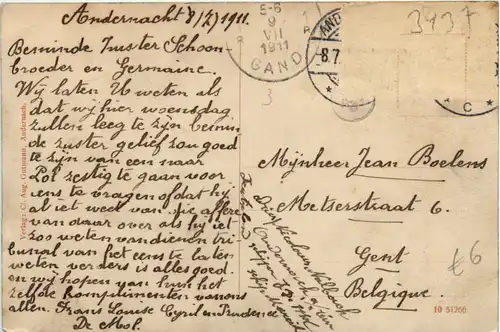 Andernacht 8/7/1911.
Beminde Zuster Schoon
broeder en Germaine.
Wij laten U weten als
dat wij hier woensdag
zullen leeg te zijn bemin
de zuster gelief zou goed
te zijn van een naar
Pol zestig te gaan voor
iens te vragen of dat hij
al iet weet van die affere
van daar over als hij iet
zoo weten van dienen tri-
bunal van het eens te laten
weten verders is alles goed.
en wij hopen van hun het
zelfste komplimenten van ons
allen. Frans Louise Cyriel en Prudence
De Mol.
Mijnheer Jean Boelens
Metserstraat 6.
Gent
Belgique.
5-6
9
VII
1911
GAND
AND
8.7.
C
3937
3
£6
Verlag: Cl. Aug. Gutmann, Andernach.
10 51266